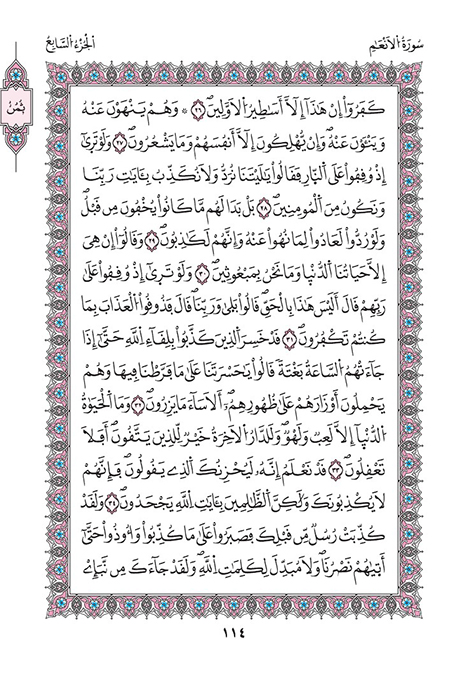 سُورَةُ الْأَنْعَامِ
الْجُزْءُ السَّابِعُ
ثُمُنُ
كَفَرُوٓاْ إِنْ هَٰذَآ إِلَّآ أَسَٰطِيرُ الْأَوَّلِينَۖ ٢٦ * وَهُمْ يَنْهَوْنَ عَنْهُ
وَيَنْـَٔوْنَ عَنْهُۖ وَإِنْ يُّهْلِكُونَ إِلَّآ أَنفُسَهُمْ وَمَا يَشْعُرُونَۖ ٢٧ وَلَوْ تَرَىٰٓ
إِذْ وُقِفُواْ عَلَى النّ۪ارِ فَقَالُواْ يَٰلَيْتَنَا نُرَدُّ وَلَا نُكَذِّبُ بِـَٔايَٰتِ رَبِّنَا
وَنَكُونُ مِنَ الْمُومِنِينَۖ ٢٨ بَلْ بَدَا لَهُم مَّا كَانُواْ يُخْفُونَ مِن قَبْلُۖ
وَلَوْ رُدُّواْ لَعَادُواْ لِمَا نُهُواْ عَنْهُ وَإِنَّهُمْ لَكَٰذِبُونَۖ ٢٩ وَقَالُوٓاْ إِنْ هِىَ
إِلَّا حَيَاتُنَا الدُّنْيَا وَمَا نَحْنُ بِمَبْعُوثِينَۖ ٣٠ وَلَوْ تَرَىٰٓ إِذْ وُقِفُواْ عَلَىٰ
رَبِّهِمْ قَالَ أَلَيْسَ هَٰذَا بِالْحَقِّۖ قَالُواْ بَلَىٰ وَرَبِّنَاۖ قَالَ فَذُوقُواْ الْعَذَابَ بِمَا
كُنتُمْ تَكْفُرُونَۖ ٣١ قَدْ خَسِرَ الَّذِينَ كَذَّبُواْ بِلِقَآءِ اللَّهِ حَتَّىٰٓ إِذَا
جَآءَتْهُمُ السَّاعَةُ بَغْتَةً قَالُواْ يَٰحَسْرَتَنَا عَلَىٰ مَا فَرَّطْنَا فِيهَا وَهُمْ
يَحْمِلُونَ أَوْزَارَهُمْ عَلَىٰ ظُهُورِهِمُۥٓۖ أَلَا سَآءَ مَا يَزِرُونَۖ ٣٢ وَمَا الْحَيَوٰةُ
الدُّنْيَآ إِلَّا لَعِبٌ وَلَهْوٌۖ وَلَلدَّارُ الْأَخِرَةُ خَيْرٌ لِّلذِينَ يَتَّقُونَۖ أَفَلَا
تَعْقِلُونَۖ ٣٣ قَدْ نَعْلَمُ إِنَّهُۥ لَيُحْزِنُكَ الَّذِى يَقُولُونَۖ فَإِنَّهُمْ
لَا يُكْذِبُونَكَ وَلَٰكِنَّ الظَّٰلِمِينَ بِـَٔايَٰتِ اللَّهِ يَجْحَدُونَۖ ٣٤ وَلَقَدْ
كُذِّبَتْ رُسُلٌ مِّن قَبْلِكَ فَصَبَرُواْ عَلَىٰ مَا كُذِّبُواْ وَأُوذُواْ حَتَّىٰٓ
أَت۪يٰهُمْ نَصْرُنَاۖ وَلَا مُبَدِّلَ لِكَلِمَٰتِ اللَّهِۖ وَلَقَدْ جَآءَكَ مِن نَّبَإِےْ
١١٤